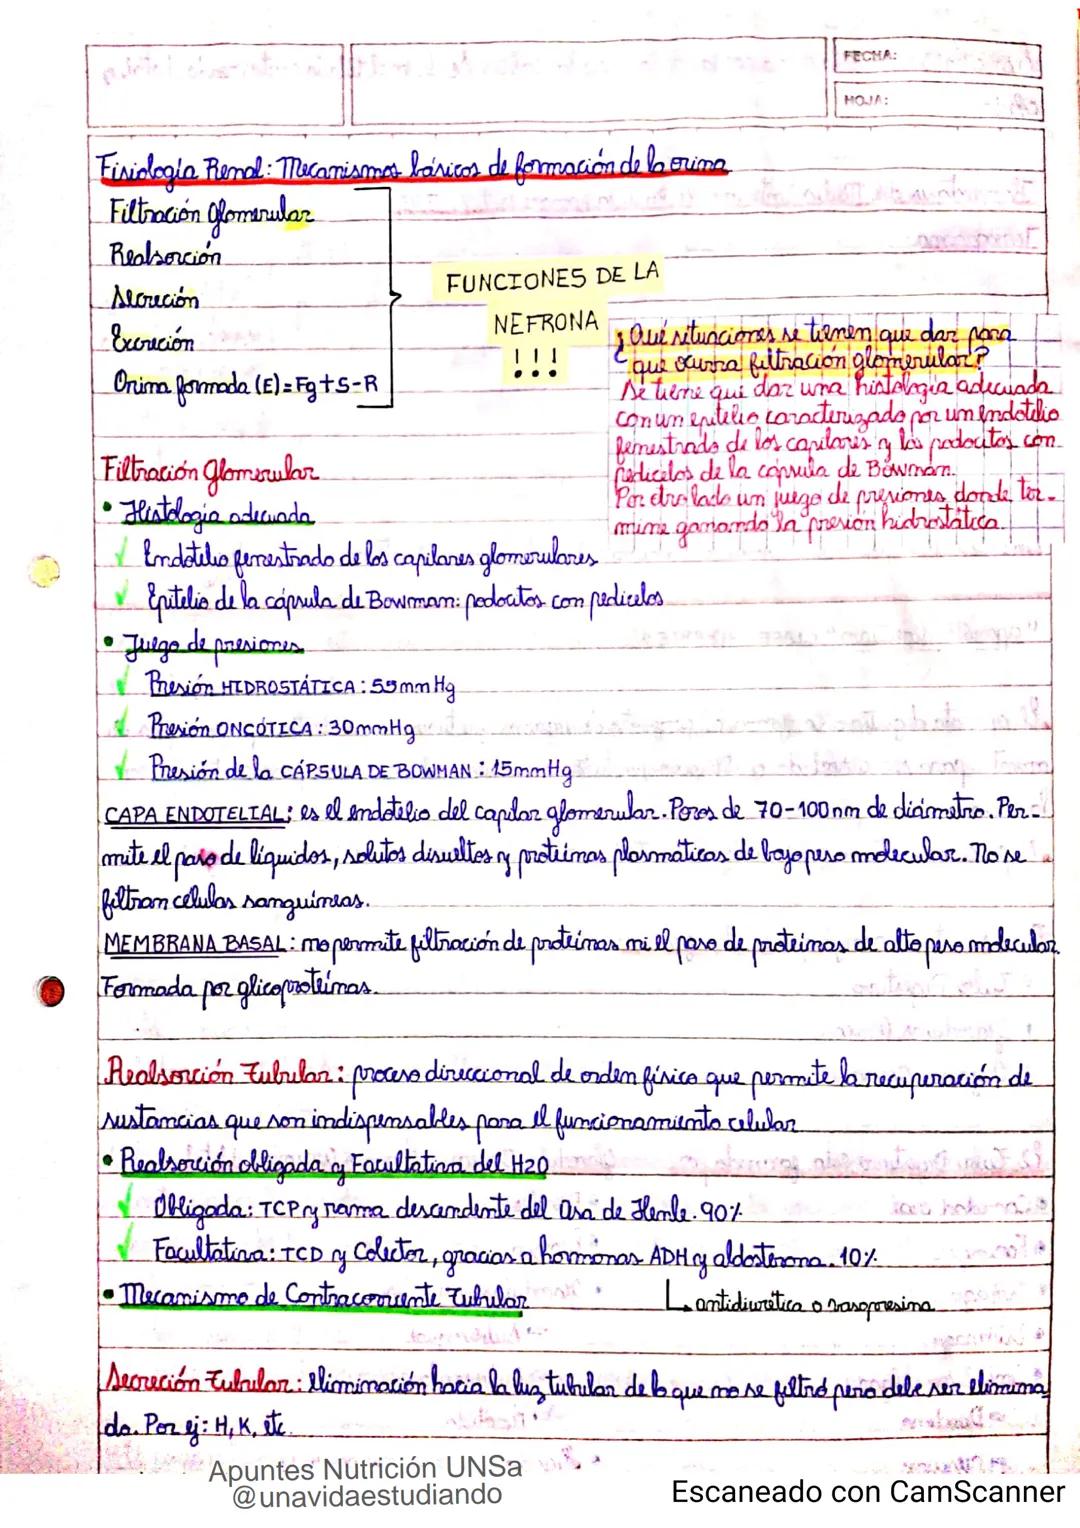 FECHA:
HOJA:
Fisiología Renal: Mecanismos básicos de formación de la orina
Filtración Glomerular
Reabsorción
Secreción
Excreción
Orina formada (E)=Fg+S-R
FUNCIONES DE LA
NEFRONA
!!!
¿Qué situaciones se tienen que dar para
que ocurra filtración glomerular?
Se tiene que dar una histología adecuada
con un epitelio caracterizado por un endotelio
fenestrado de los capilares y los podocitos con
pedicelos de la cápsula de Bowman.
Por otro lado un juego de presiones donde ter-
mine ganando la presión hidrostática.
Filtración Glomerular
• Histología adecuada
✓ Endotelio fenestrado de los capilares glomerulares
✓ Epitelio de la cápsula de Bowman: podocitos con pedicelos
• Juego de presiones
✓ Presión HIDROSTÁTICA: 55mmHg
✓ Presión ONCÓTICA: 30mmHg
✓ Presión de la CÁPSULA DE BOWMAN: 15mmHg
CAPA ENDOTELIAL: es el endotelio del capilar glomerular. Poros de 70-100nm de diámetro. Per-
mite el paso de líquidos, solutos disueltos y proteínas plasmáticas de bajo peso molecular. No se
filtran células sanguíneas.
MEMBRANA BASAL: no permite filtración de proteínas ni el paso de proteínas de alto peso molecular.
Formada por glicoproteínas.
Reabsorción Tubular: proceso direccional de orden físico que permite la recuperación de
sustancias que son indispensables para el funcionamiento celular
• Reabsorción obligada y Facultativa del H2O
✓ Obligada: TCP y rama descendente del Asa de Henle. 90%
✓ Facultativa: TCD y Colector, gracias a hormonas ADH y aldosterona. 10%
• Mecanismo de Contracorriente Tubular
antidiurética o vasopresina
Secreción Tubular: eliminación hacia la luz tubular de lo que no se filtró pero debe ser elimina
do. Por ej: H, K, etc.
Apuntes Nutrición UNSa
@unavidaestudiando
Escaneado con CamScanner